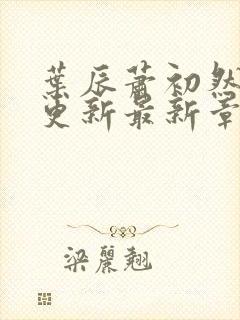 葉辰蕭初然
更新最新章
梁麗翹